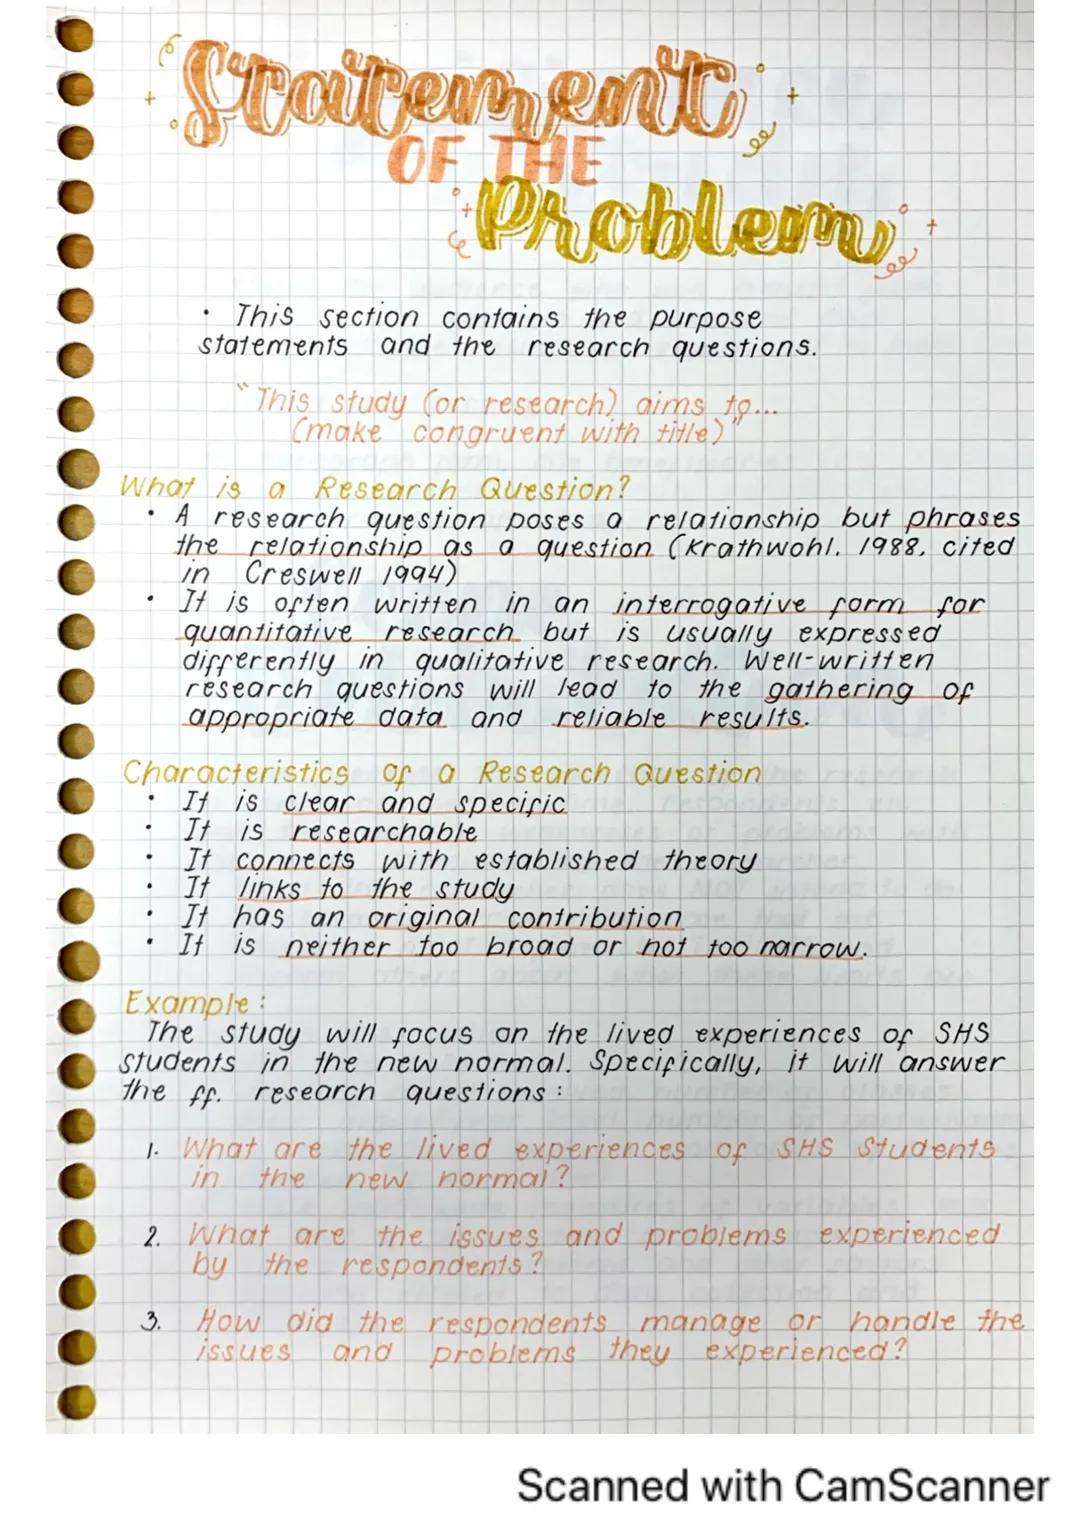 Statement
OF THE
Problem
• This section contains the purpose
statements and the research questions.
"This study (or research) aims to...
(make congruent with title)"
What is a Research Question?
• A research question poses a relationship but phrases
the relationship as a question (Krathwohl, 1988, cited
in Creswell 1994)
• It is often written in an interrogative form for
quantitative research but is usually expressed
differently in qualitative research. Well-written
research questions will lead to the gathering of
appropriate data and reliable results.
Characteristics of a Research Question
• It is clear and specific
• It is researchable
• It connects with established theory
• It links to the study
• It has an original contribution
• It is neither too broad or not too narrow.
Example:
The study will focus on the lived experiences of SHS
students in the new normal. Specifically, it will answer
the ff. research questions:
1. What are the lived experiences of SHS Students
in the new normal?
2. What are the issues and problems experienced
by the respondents?
3. How did the respondents manage or handle the
issues and problems they experienced?
Scanned with CamScanner